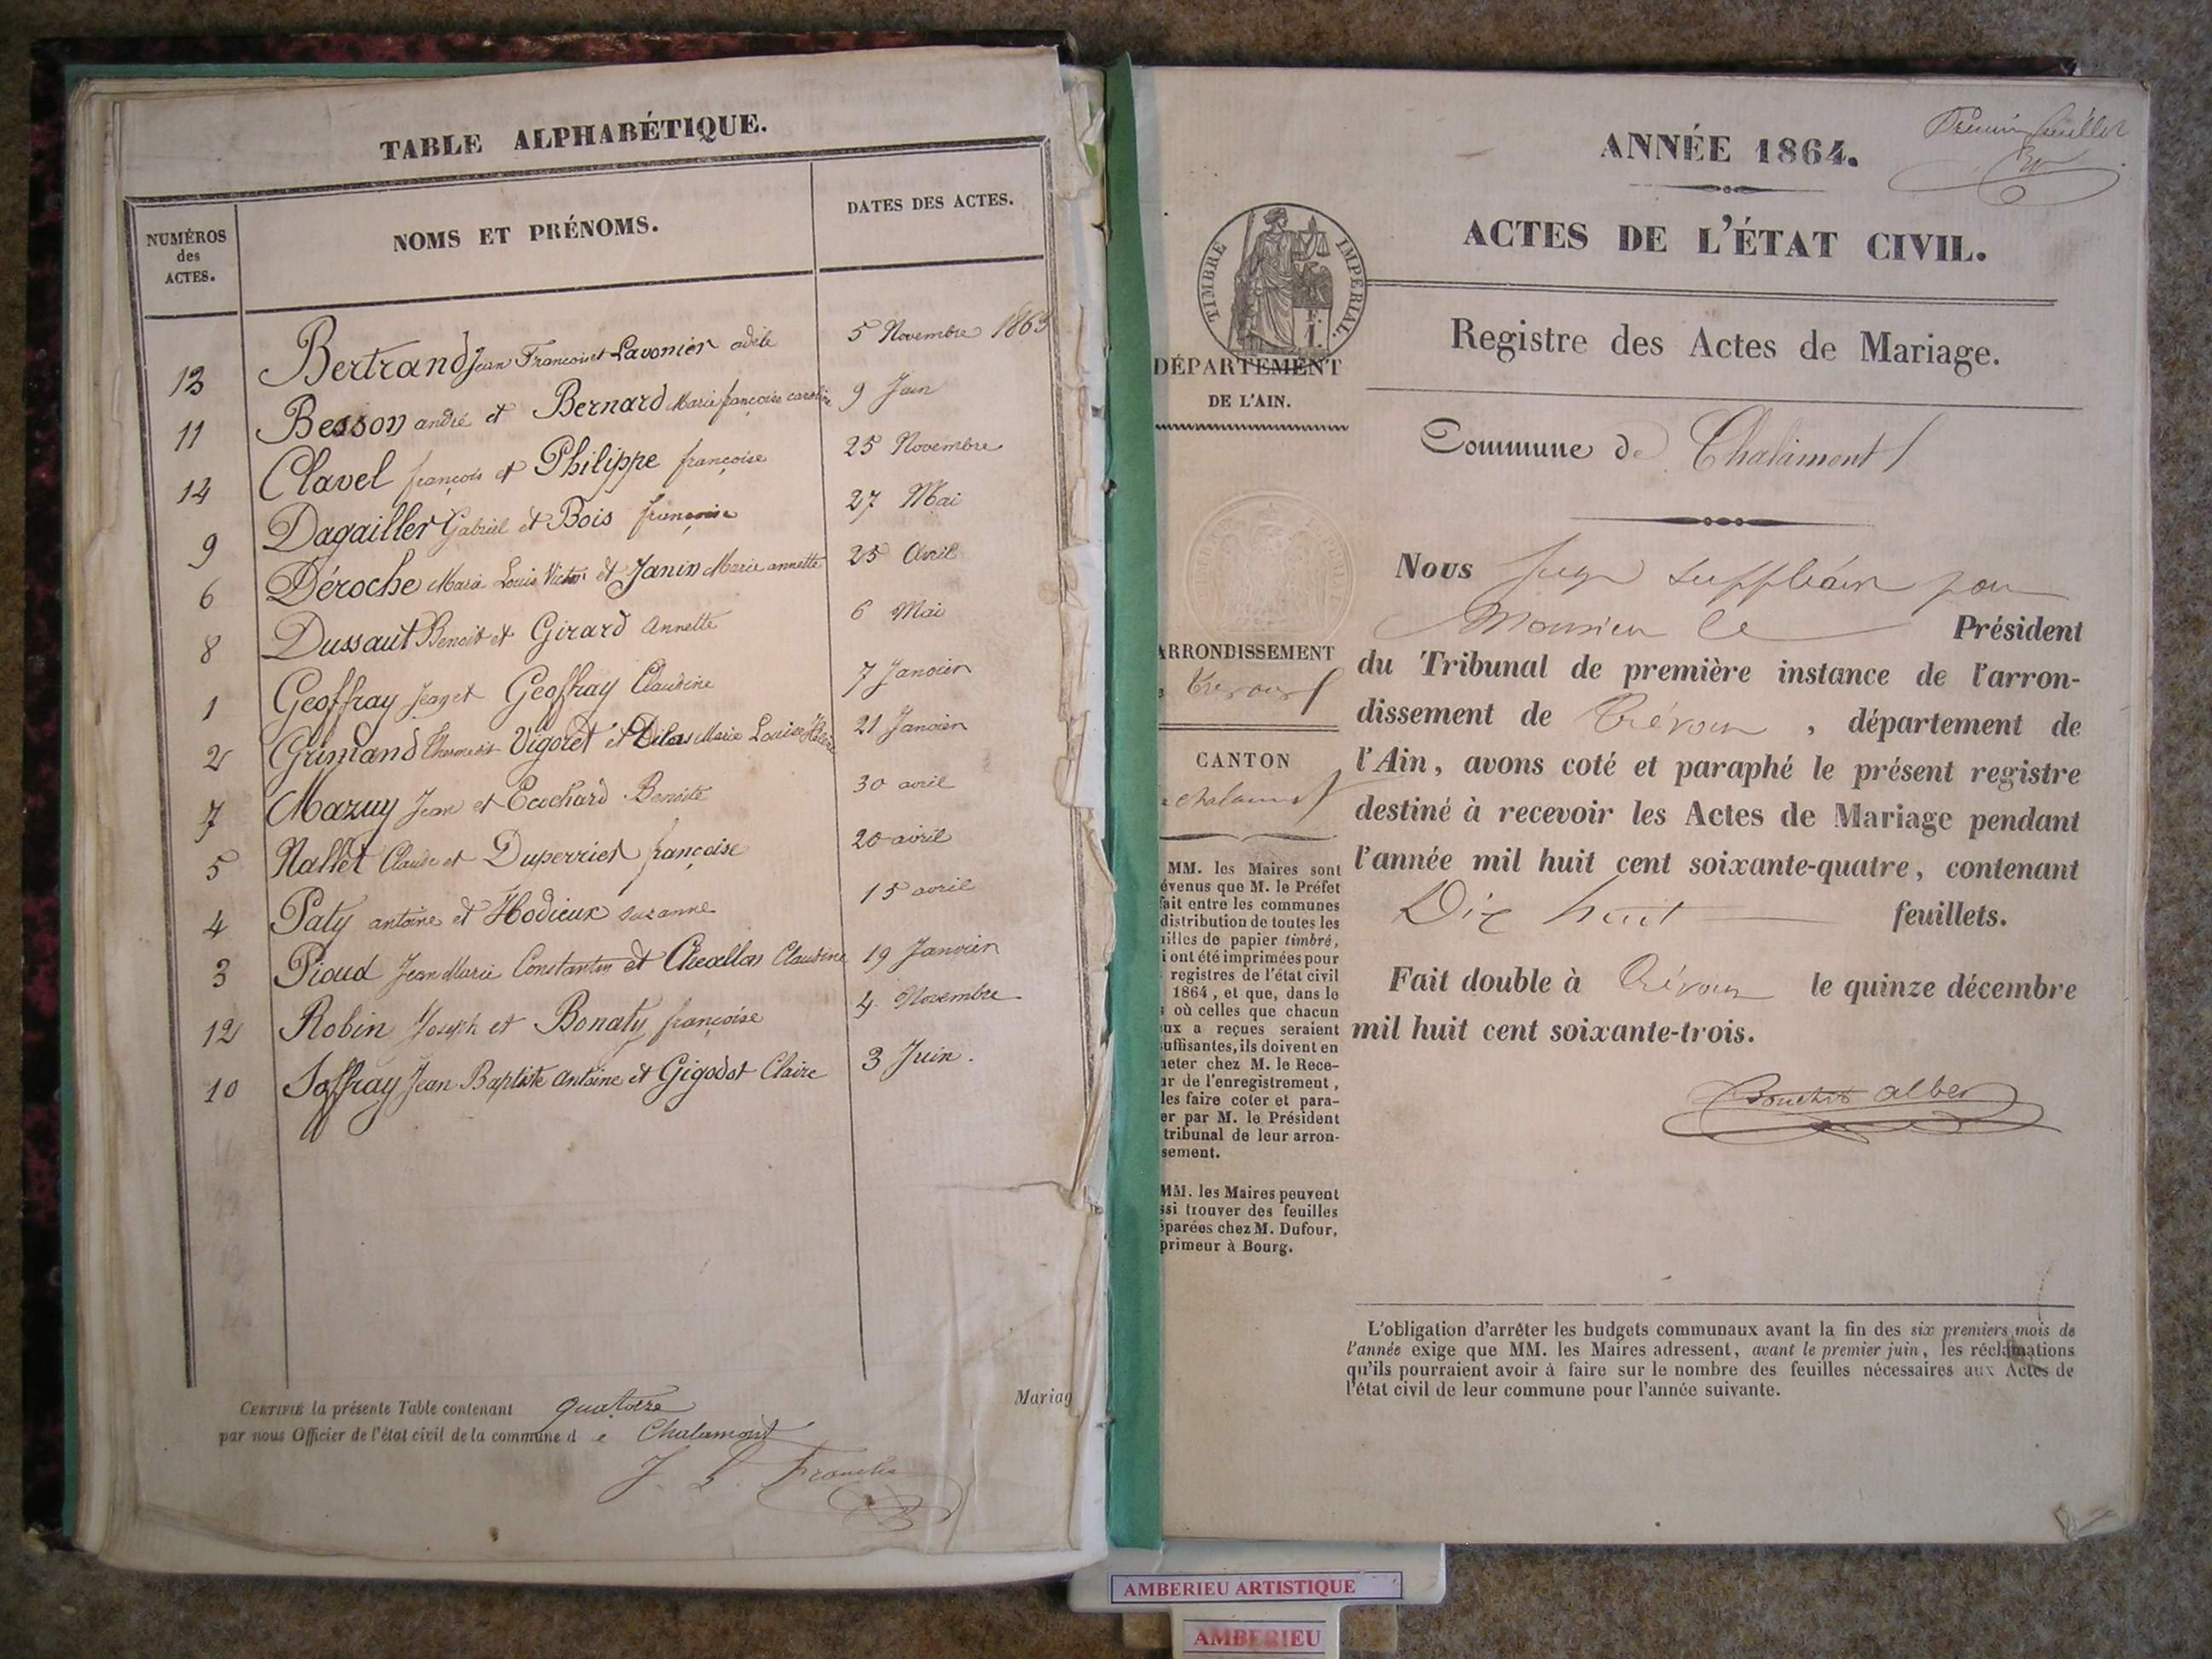 TABLE ALPHABÉTIQUE.
NUMÉROS
des
ACTES.
NOMS ET PRÉNOMS.
DATES DES ACTES.
13 Bertrand Jean François et Lavonier adèle 5 Novembre 1863
11 Besson andré et Bernard Marie françoise caroline 9 Juin
14 Clavel françois et Philippe françoise 25 Novembre
9 Dagailler Gabriel et Bois françoise 27 Mai
6 Déroche Marie Louis Victor et Janin Marie annette 25 Avril
8 Dussaut Benoit et Girard Annette 6 Mai
1 Geoffray Jean et Geoffray Claudine 7 Janvier
2 Grimand Vigoret et Dilas Marie Louise 21 Janvier
7 Mazuy Jean et Ecochard Benoite 30 avril
5 Nallet Claude et Duperrier françoise 20 avril
4 Paty antoine et Hodieux suzanne 15 avril
3 Pioud Jean Marie Constantin et Claudine 19 Janvier
12 Robin Joseph et Bonaty françoise 4 Novembre
10 Joffray Jean Baptiste antoine et Gigodot Claire 3 Juin.
CERTIFIÉ la présente Table contenant quatorze
par nous Officier de l'état civil de la commune de Chalamont
J. L.
Mariag
Premier feuillet
ANNÉE 1864.
ACTES DE L'ÉTAT CIVIL.
TIMBRE IMPÉRIAL.
Registre des Actes de Mariage.
DÉPARTEMENT
DE L'AIN.
Commune de Chalamont
ARRONDISSEMENT
Trévoux
CANTON
chalamont
MM. les Maires sont
évenus que M. le Préfet
fait entre les communes
distribution de toutes les
uilles de papier timbré,
i ont été imprimées pour
registres de l'état civil
1864, et que, dans le
s où celles que chacun
eux a reçues seraient
suffisantes, ils doivent en
heter chez M. le Rece-
ur de l'enregistrement,
les faire coter et para-
er par M. le Président
tribunal de leur arron-
sement.
MM. les Maires peuvent
ssi trouver des feuilles
éparées chez M. Dufour,
primeur à Bourg.
Nous Juge suppléant pour
Monsieur le Président
du Tribunal de première instance de l'arron-
dissement de Trévoux, département de
l'Ain, avons coté et paraphé le présent registre
destiné à recevoir les Actes de Mariage pendant
l'année mil huit cent soixante-quatre, contenant
Dix huit feuillets.
Fait double à Trévoux le quinze décembre
mil huit cent soixante-trois.
L'obligation d'arrêter les budgets communaux avant la fin des six premiers mois de
l'année exige que MM. les Maires adressent, avant le premier juin, les réclamations
qu'ils pourraient avoir à faire sur le nombre des feuilles nécessaires aux Actes de
l'état civil de leur commune pour l'année suivante.
AMBERIEU ARTISTIQUE
AMBERIEU